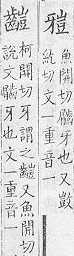 魚開切牙也又
紇切文一重音一
柯開切牙謂之又魚開切
說文牙也文一重音一